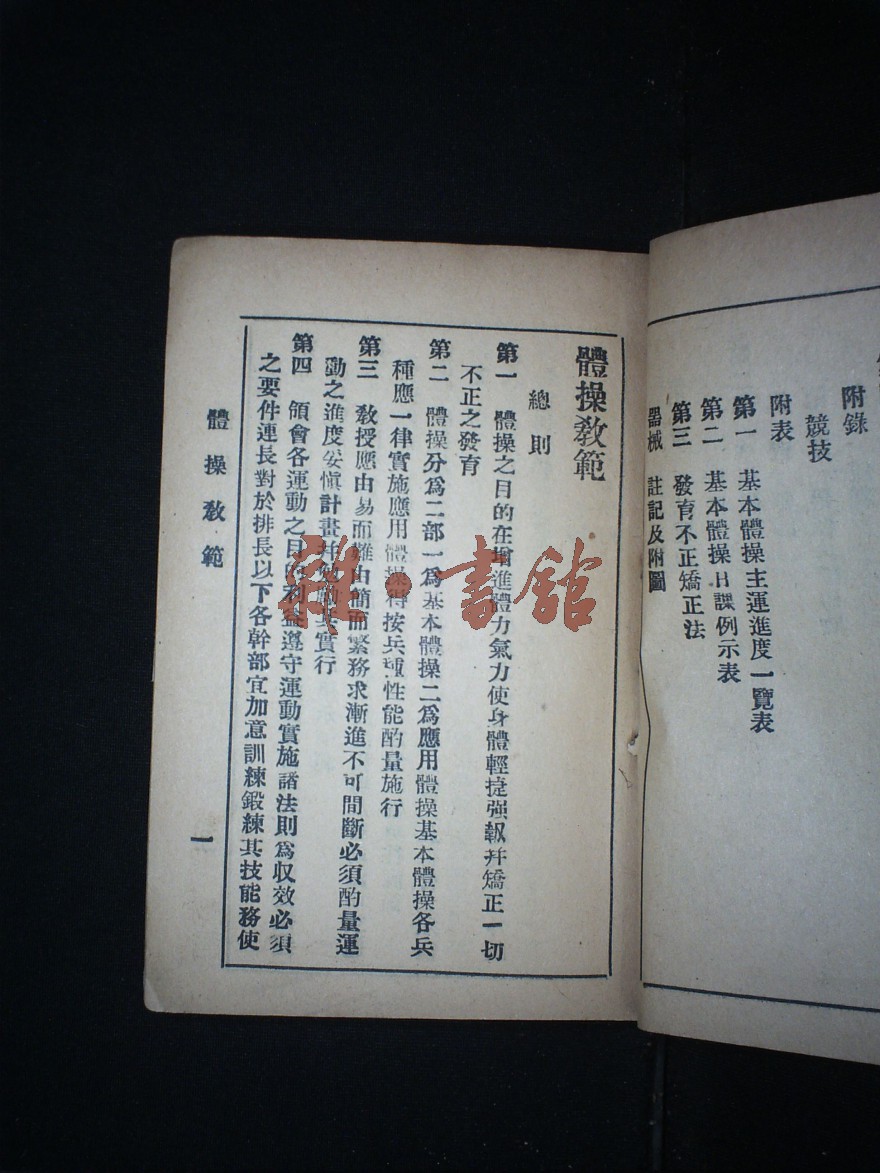 附錄
競技
附表
第一 基本體操主運進度一覽表
第二 基本體操日課例示表
第三 發育不正矯正法
器械 註記及附圖
體操教範
總則
第一 體操之目的在增進體力氣力使身體輕捷强報幷矯正一切
不正之發育
第二 體操分爲二部一爲基本體操二爲應用體操基本體操各兵
種應一律實施應用體操得按兵種性能酌量施行
第三 教授應由易而難由簡而繁務求漸進不可間斷必須酌量運
動之進度妥愼計畫幷勉勵其實行
第四 領會各運動之目的利益遵守運動實施諸法則爲収效必須
之要件連長對於排長以下各幹部宜加意訓練鍛練其技能務使
體操教範
一
雜·書館